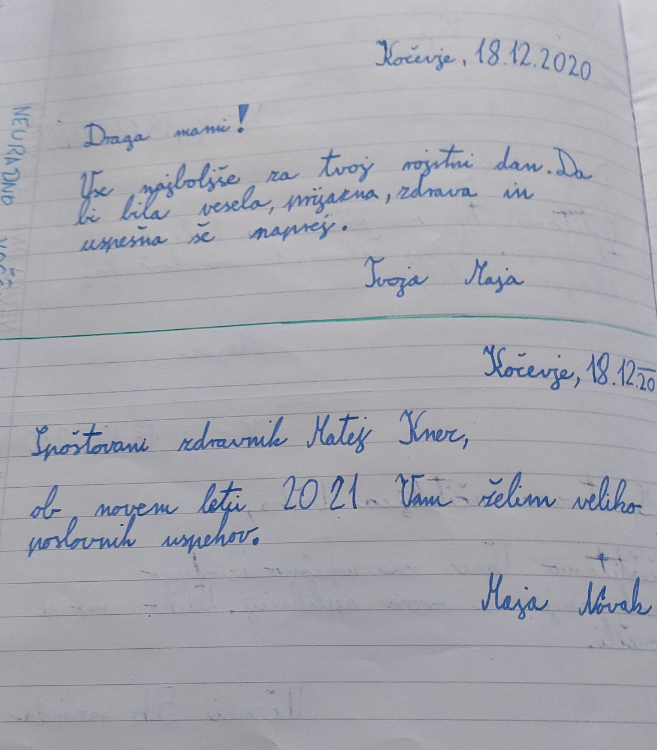 Kočevje, 18.12.2020
Draga mami!
Vse najboljše za tvoj rojstni dan. Da
bi bila vesela, prijazna, zdrava in
uspešna še naprej.
Tvoja Maja
NEURADNO
Kočevje, 18.12.20
Spoštovani zdravnik Matej Kner,
ob novem letu 2021 Vam želim veliko
poslovnih uspehov.
Maja Novak